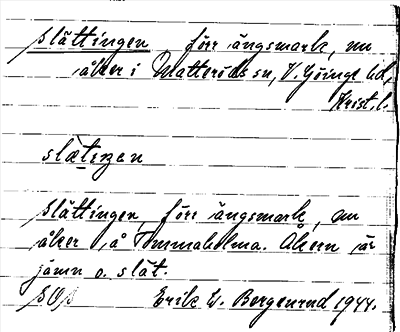 Slättingen, förr ängsmark, nu
åker i Matteröds sn, V. Göinge hd,
Krist. l.
slätıŋen
Slättingen, förr ängsmark, nu
åker på Ummaholma. Åkern är
jämn o. slät.
SOS Erik W. Bergenrud 1944.